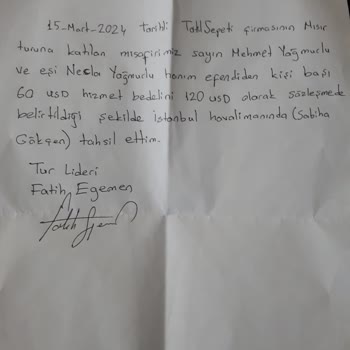 15-Mart-2024 tarihli TatilSepeti firmasının Mısır
turuna katılan misafirimiz sayın Mehmet Yağmurlu
ve eşi Necla Yağmurlu hanım efendiden kişi başı
60 USD hizmet bedelini 120 USD olarak sözleşmede
belirtildiği şekilde İstanbul havalimanında (Sabiha
Gökçen) tahsil ettim.
Tur Lideri
Fatih Egemen